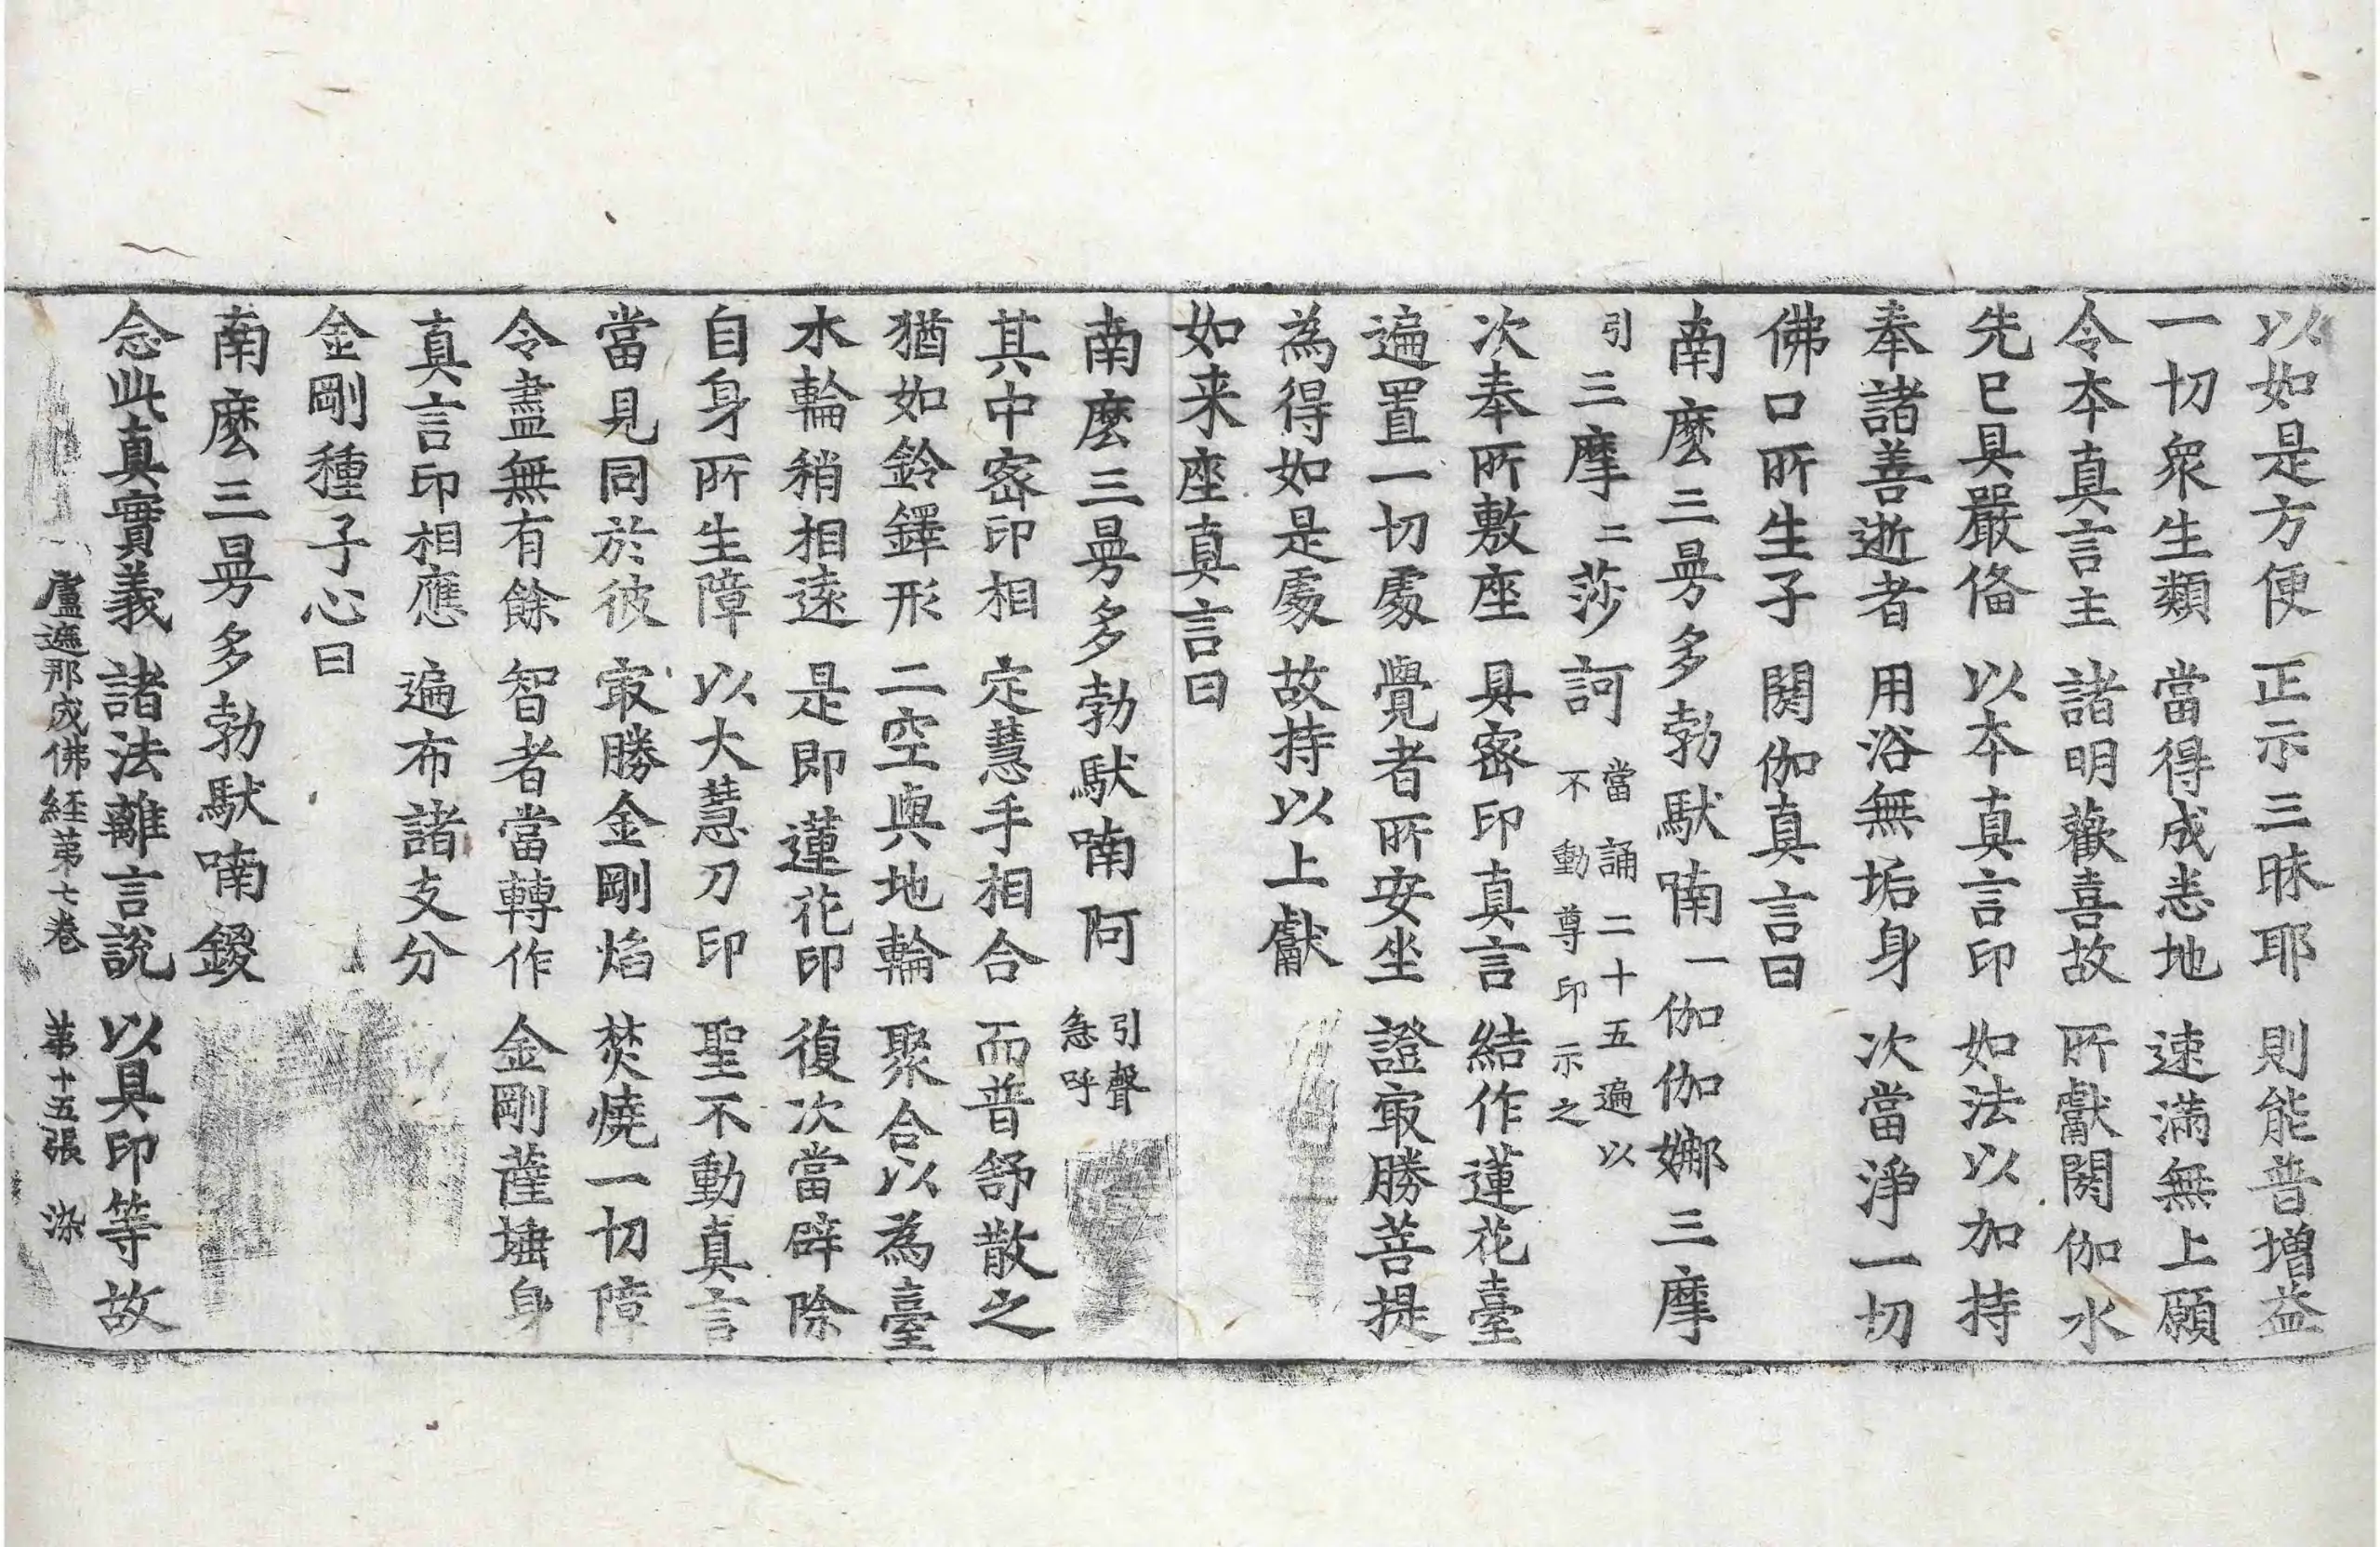 以如是方便　正示三昧耶　則能普增益
一切衆生類　當得成悉地　速滿無上願
令本真言主　諸明歡喜故　所獻閼伽水
先已具嚴俻　以本真言印　如法以加持
奉諸善逝者　用浴無垢身　次當淨一切
佛口所生子　閼伽真言曰
南麽三曼多勃䭾喃一伽伽娜三摩
引三摩二莎訶當誦二十五遍以不動尊印示之
次奉所敷座　具密印真言　結作蓮花臺
遍置一切處　覺者所安坐　證㝡勝菩提
為得如是處　故持以上獻
如来座真言曰
南麽三曼多勃䭾喃阿引聲急呼
其中密印相　定慧手相合　而普舒散之
猶如鈴鐸形　二空與地輪　聚合以為臺
水輪稍相遠　是即蓮花印　復次當辟除
自身所生障　以大慧刀印　聖不動真言
當見同於彼　㝡勝金剛焰　焚燒一切障
令盡無有餘　智者當轉作　金剛薩埵身
真言印相應　遍布諸支分
金剛種子心曰
南麽三曼多勃䭾喃鑁
念此真實義　諸法離言說　以具印等故
盧遮那成佛経苐七卷　苐十五張　染